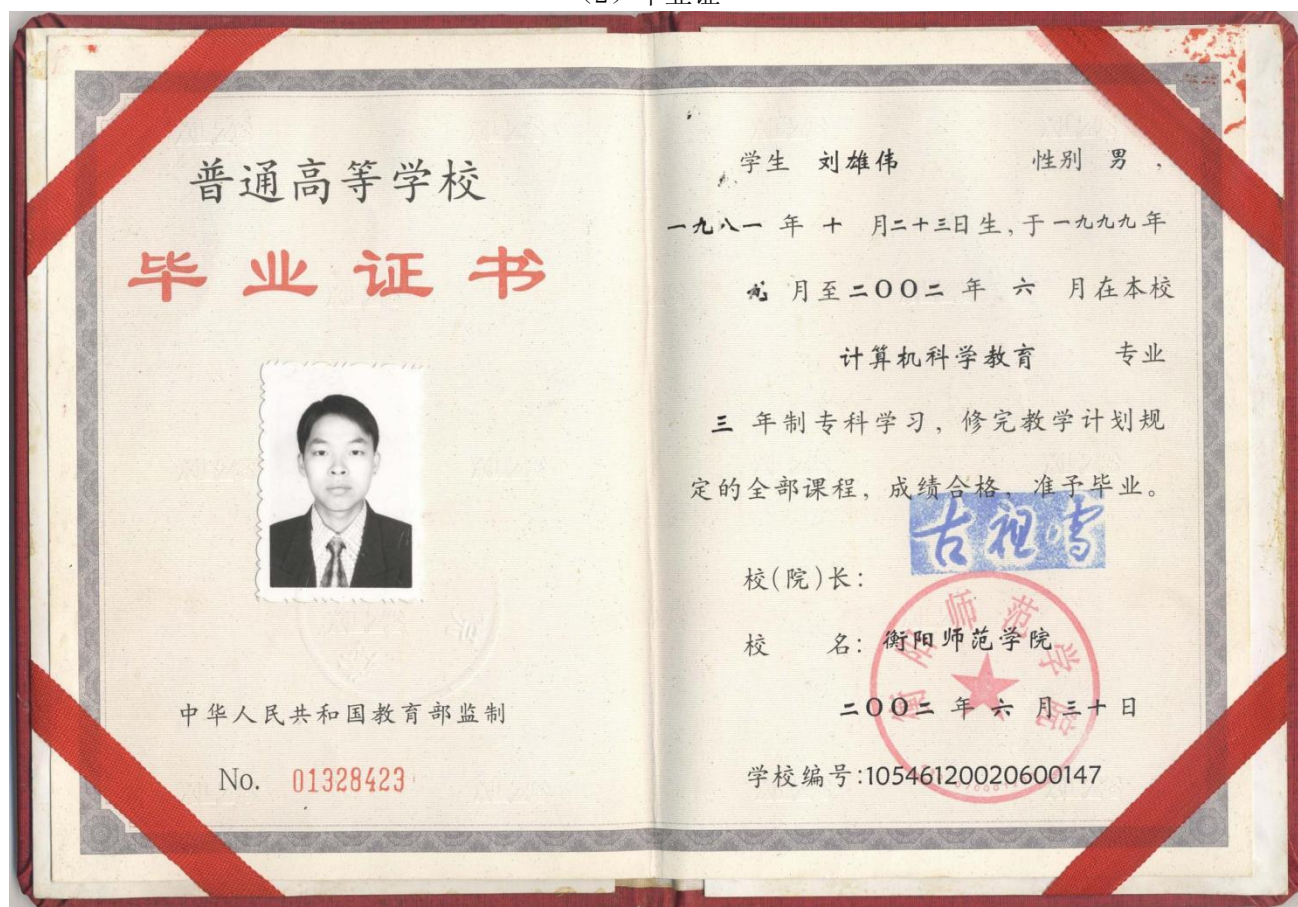 （2）毕业证
普通高等学校
毕业证书
中华人民共和国教育部监制
No. 01328423
学生 刘雄伟 性别 男，
一九八一 年 十 月二十三日生，于一九九九年
九 月至二〇〇二 年 六 月在本校
计算机科学教育 专业
三 年制专科学习，修完教学计划规
定的全部课程，成绩合格，准予毕业。
古祖雪
校(院)长：
校 名：衡阳师范学院
衡阳师范学院
二〇〇二 年 六 月三十日
学校编号:10546120020600147